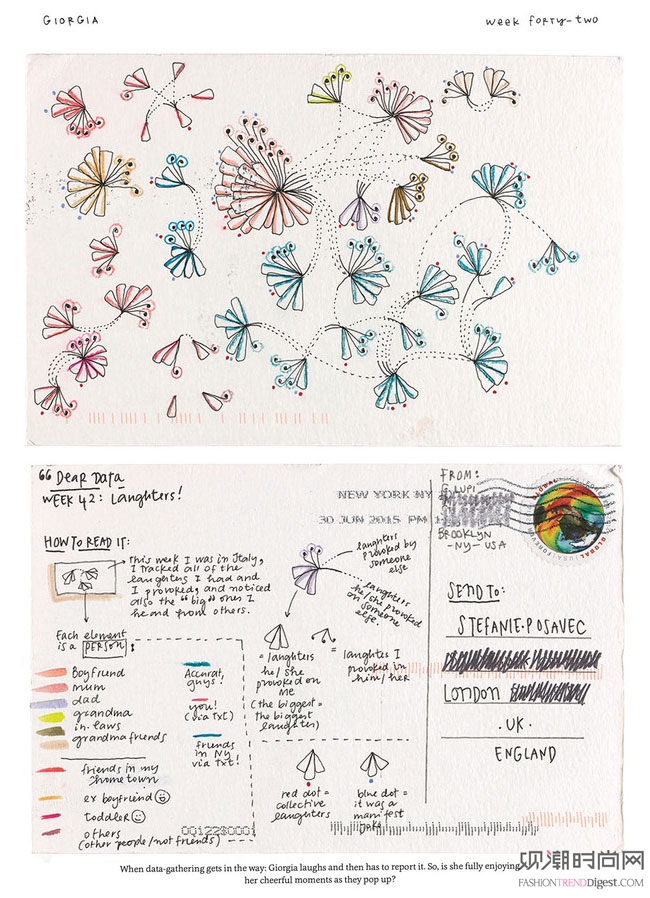 GIORGIA
week forty-two
Dear Data
WEEK 42: Laughters!
HOW TO READ IT:
This week I was in Italy,
I tracked all of the
laughters I had and
I provoked, and noticed
also the "big" ones I
heard from others.
Each element
is a PERSON:
Boyfriend
mum
dad
grandma
in-laws
grandma friends
friends in my
hometown
ex boyfriend
toddler
others
(other people/not friends)
Accurat,
guys!
you!
(via txt)
friends
in NY
via txt!
laughters
provoked by
someone
else
laughters
he/she provoked
on someone
else
= laughters
he/she
provoked on
me
(the biggest =
the biggest
laughter)
= laughters I
provoked in
him/her
red dot =
collective
laughters
blue dot =
it was a
manifest
joke
NEW YORK NY
30 JUN 2015 PM
FROM:
G. LUPI
BROOKLYN
-NY- USA
GLOBAL
SEND TO:
STEFANIE POSAVEC
LONDON
·UK·
ENGLAND
When data-gathering gets in the way: Giorgia laughs and then has to report it. So, is she fully enjoying
her cheerful moments as they pop up?
观潮时尚网
FASHIONTRENDDigest.COM